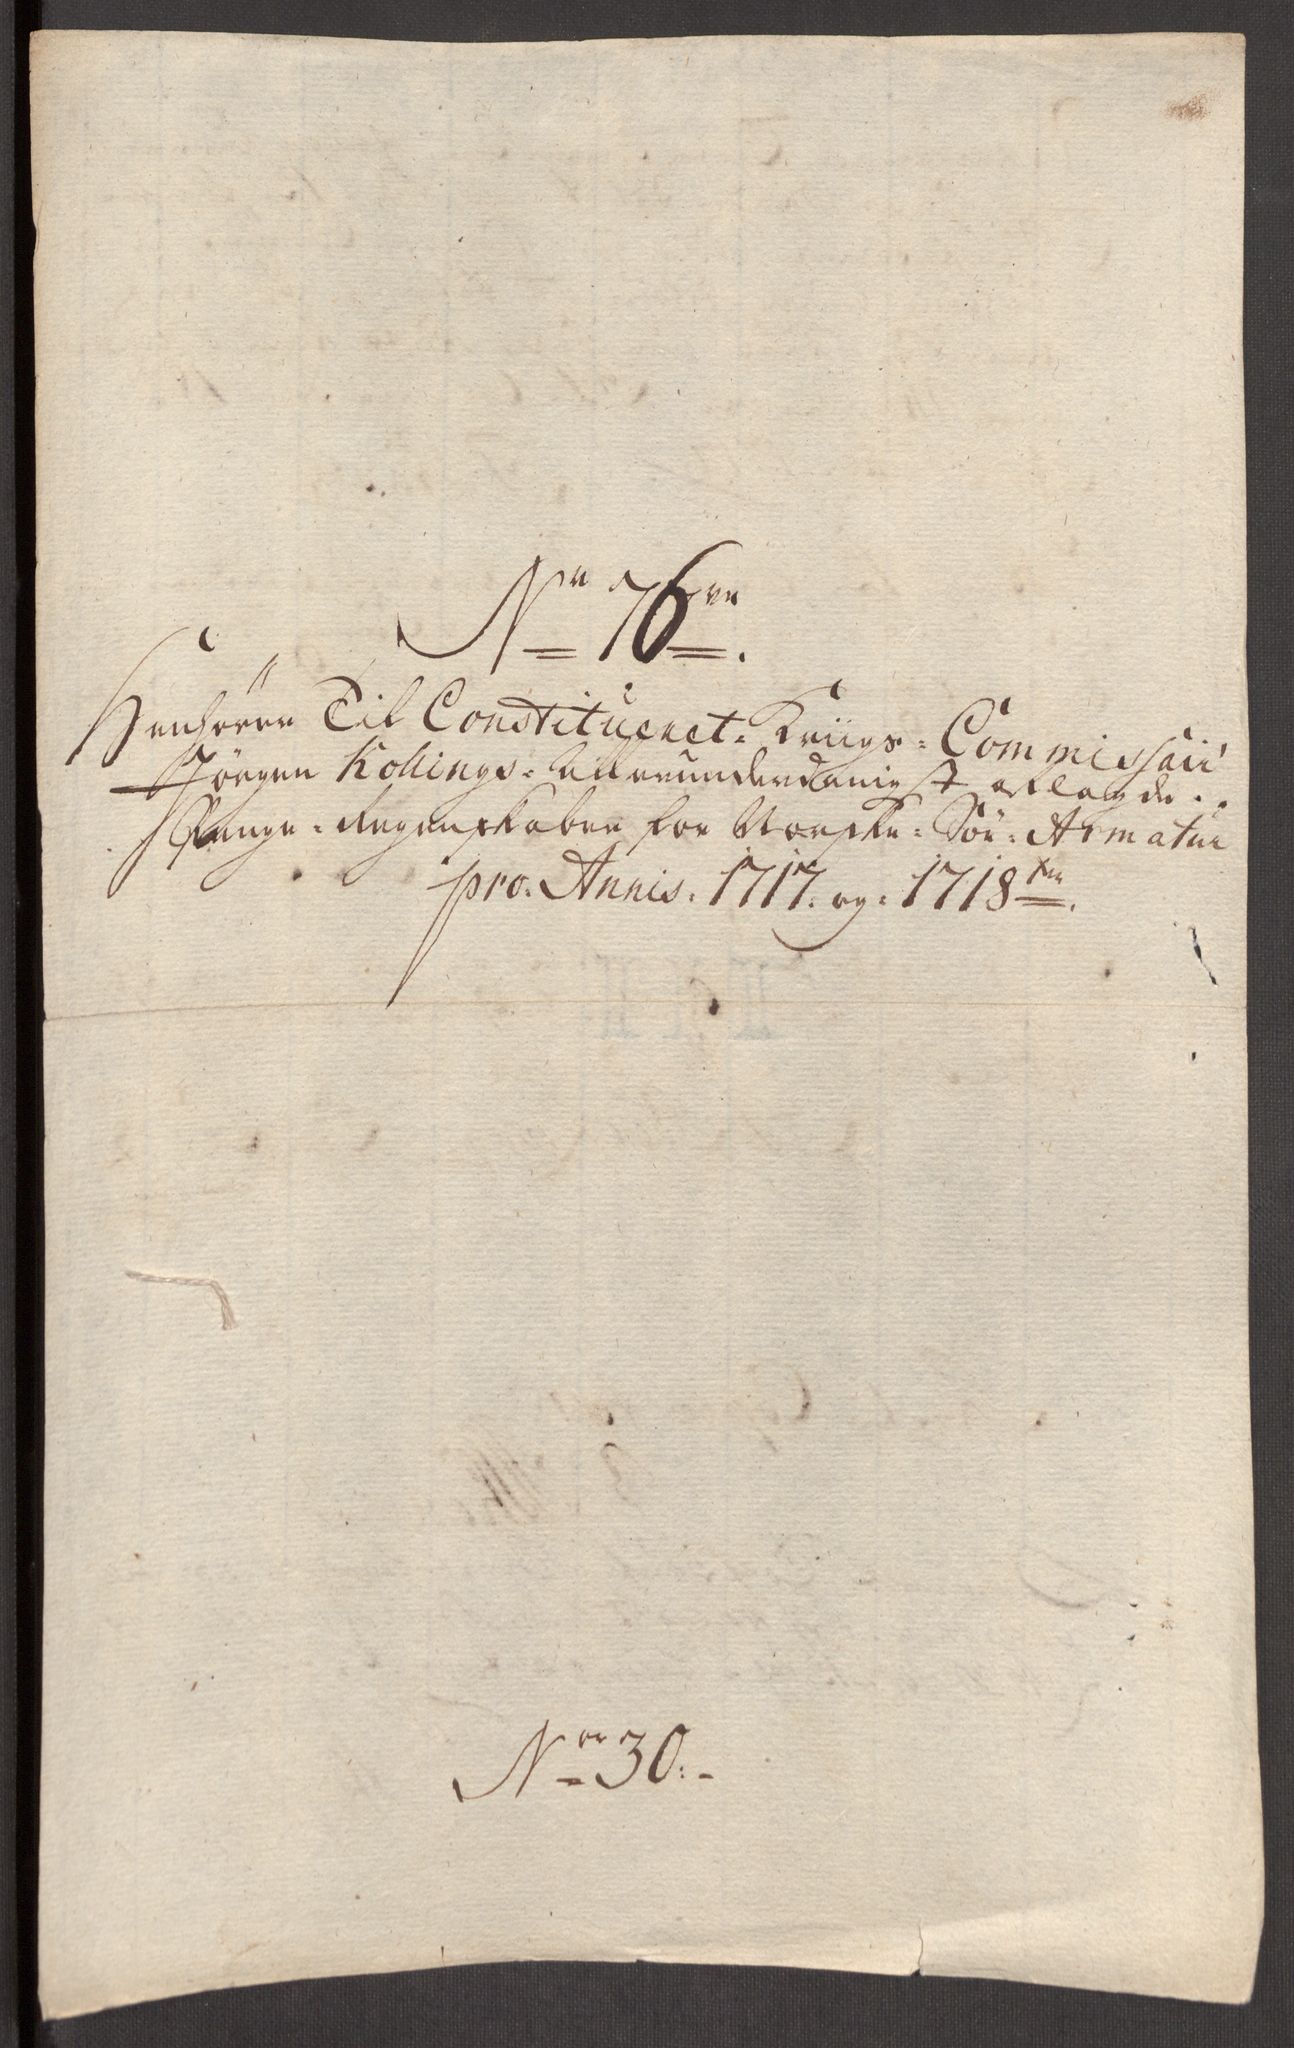 No 76
Henhörer Til Constitueret. Kriigs= Commissair
Jörgen Kollings= Allerunderdanigst aflagde..
Penge= Regenskaber for Norske= Söe= Armatur
pro. Annis. 1717. og. 1718
No 30.